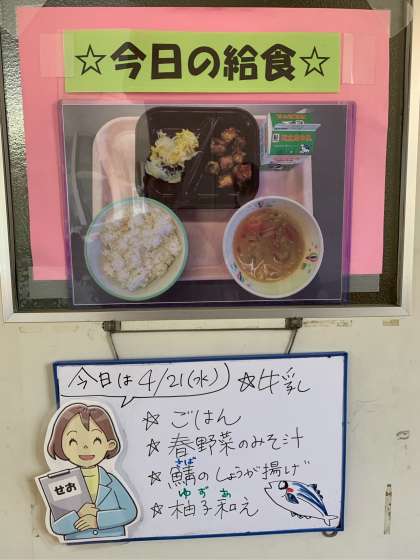 ☆今日の給食☆
今日は 4/21(水) ☆牛乳
☆ ごはん
☆ 春野菜のみそ汁
さば
☆ 鯖のしょうが揚げ
ゆずあ
☆ 柚子和え
せお